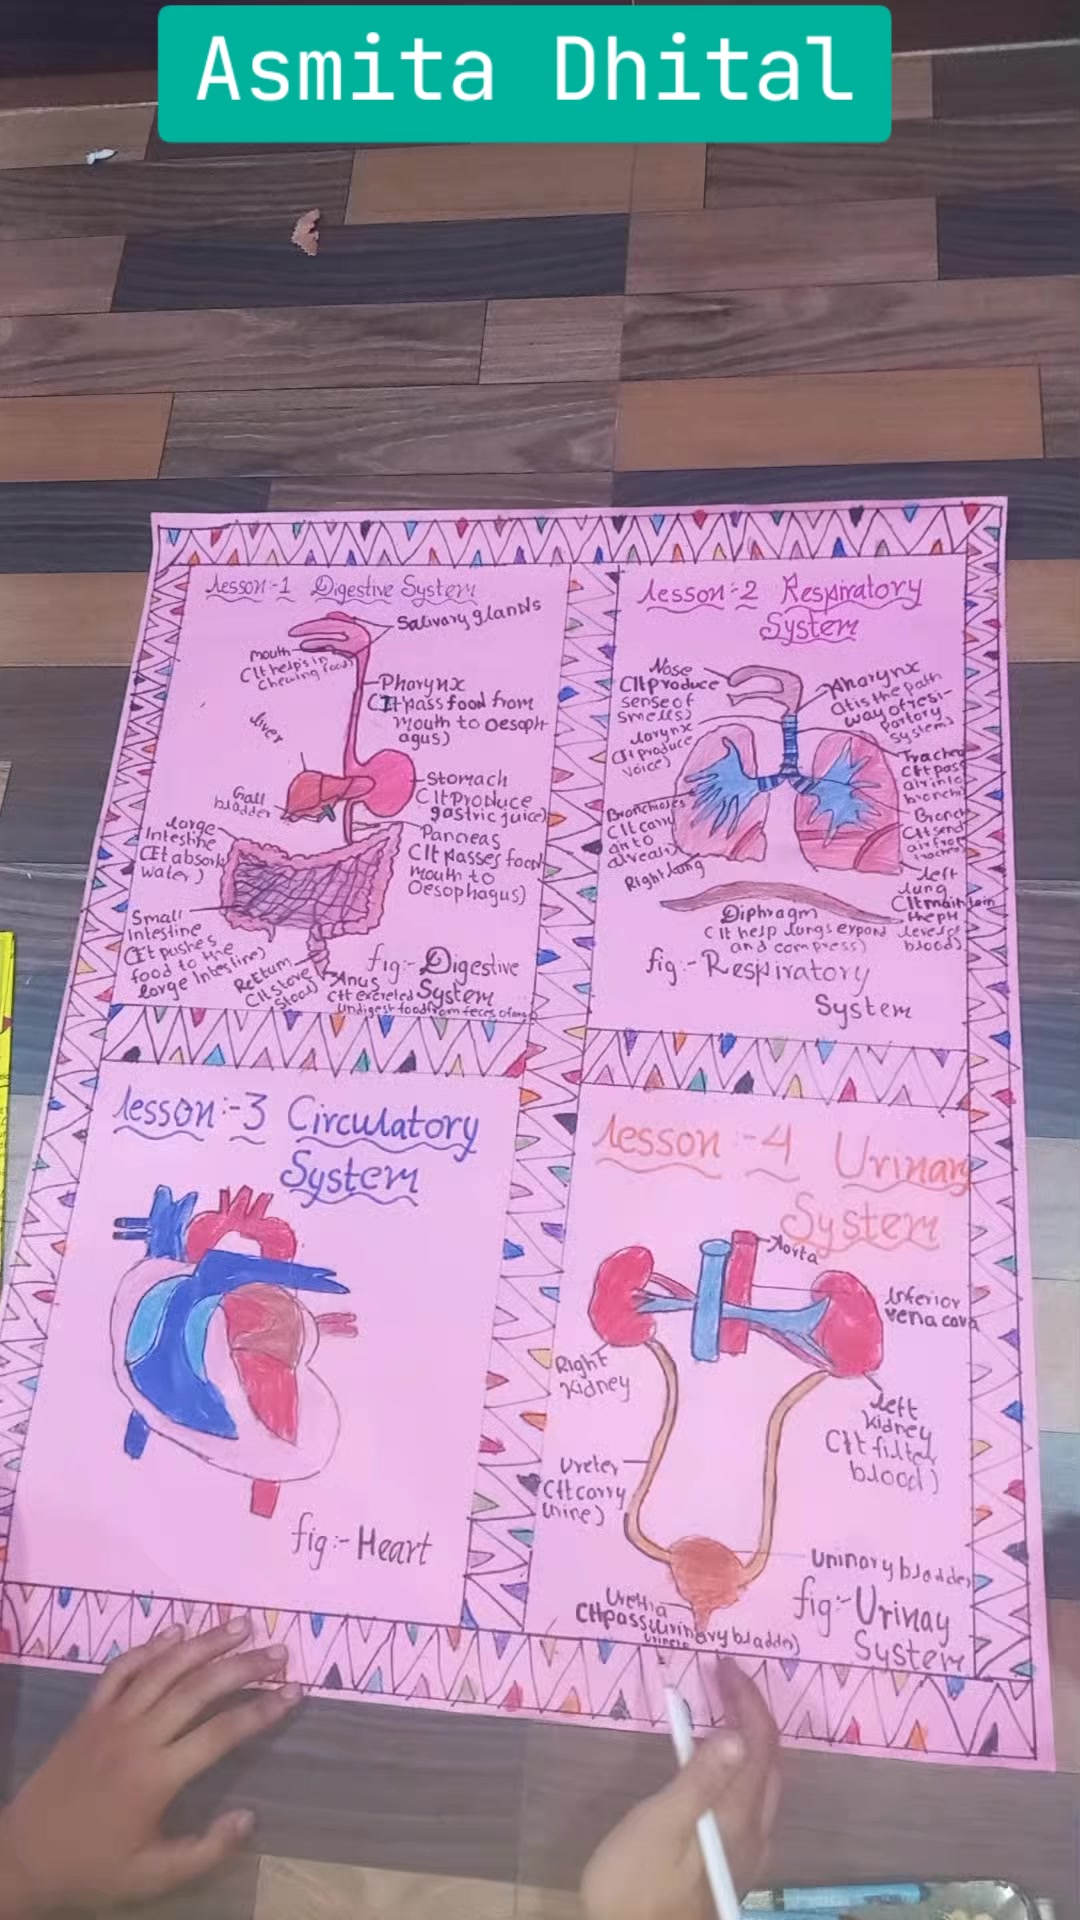 Asmita Dhital
Lesson:-1 Digestive System
Salivary glands
mouth
(It helps in
chewing food)
Pharynx
(It pass food from
mouth to Oesoph
agus)
liver
Stomach
(It Produce
gastric juice)
Gall
bladder
Pancreas
(It passes food
mouth to
Oesophagus)
large
Intestine
(It absorb
water)
Small
Intestine
(It pushes
food to the
large Intestine)
Rectum
(It store
stool)
Anus
(It excreted
Undigest food from feces of
fig:- Digestive
System
Lesson:-2 Respiratory
System
Nose
(It produce
sense of
smells)
Pharynx
path
way of resi-
partory
system)
larynx
(It produce
voice)
Trachea
(It pass
air into
bronchi)
Bronchioles
(It carry
air to
Bronc
(It send
air from
Right lung
left
lung
(It maintain
the PH
level of
blood)
Diphragm
(It help lungs expand
and compress)
fig:- Respiratory
System
Lesson:-3 Circulatory
System
fig:- Heart
Lesson:-4 Urinary
System
Aorta
Inferior
vena cava
Right
Kidney
left
kidney
(It filter
blood)
Ureter
(It carry
Urine)
Urinory bladder
Urethra
(It pass urinary bladder)
urine
fig:- Urinay
System